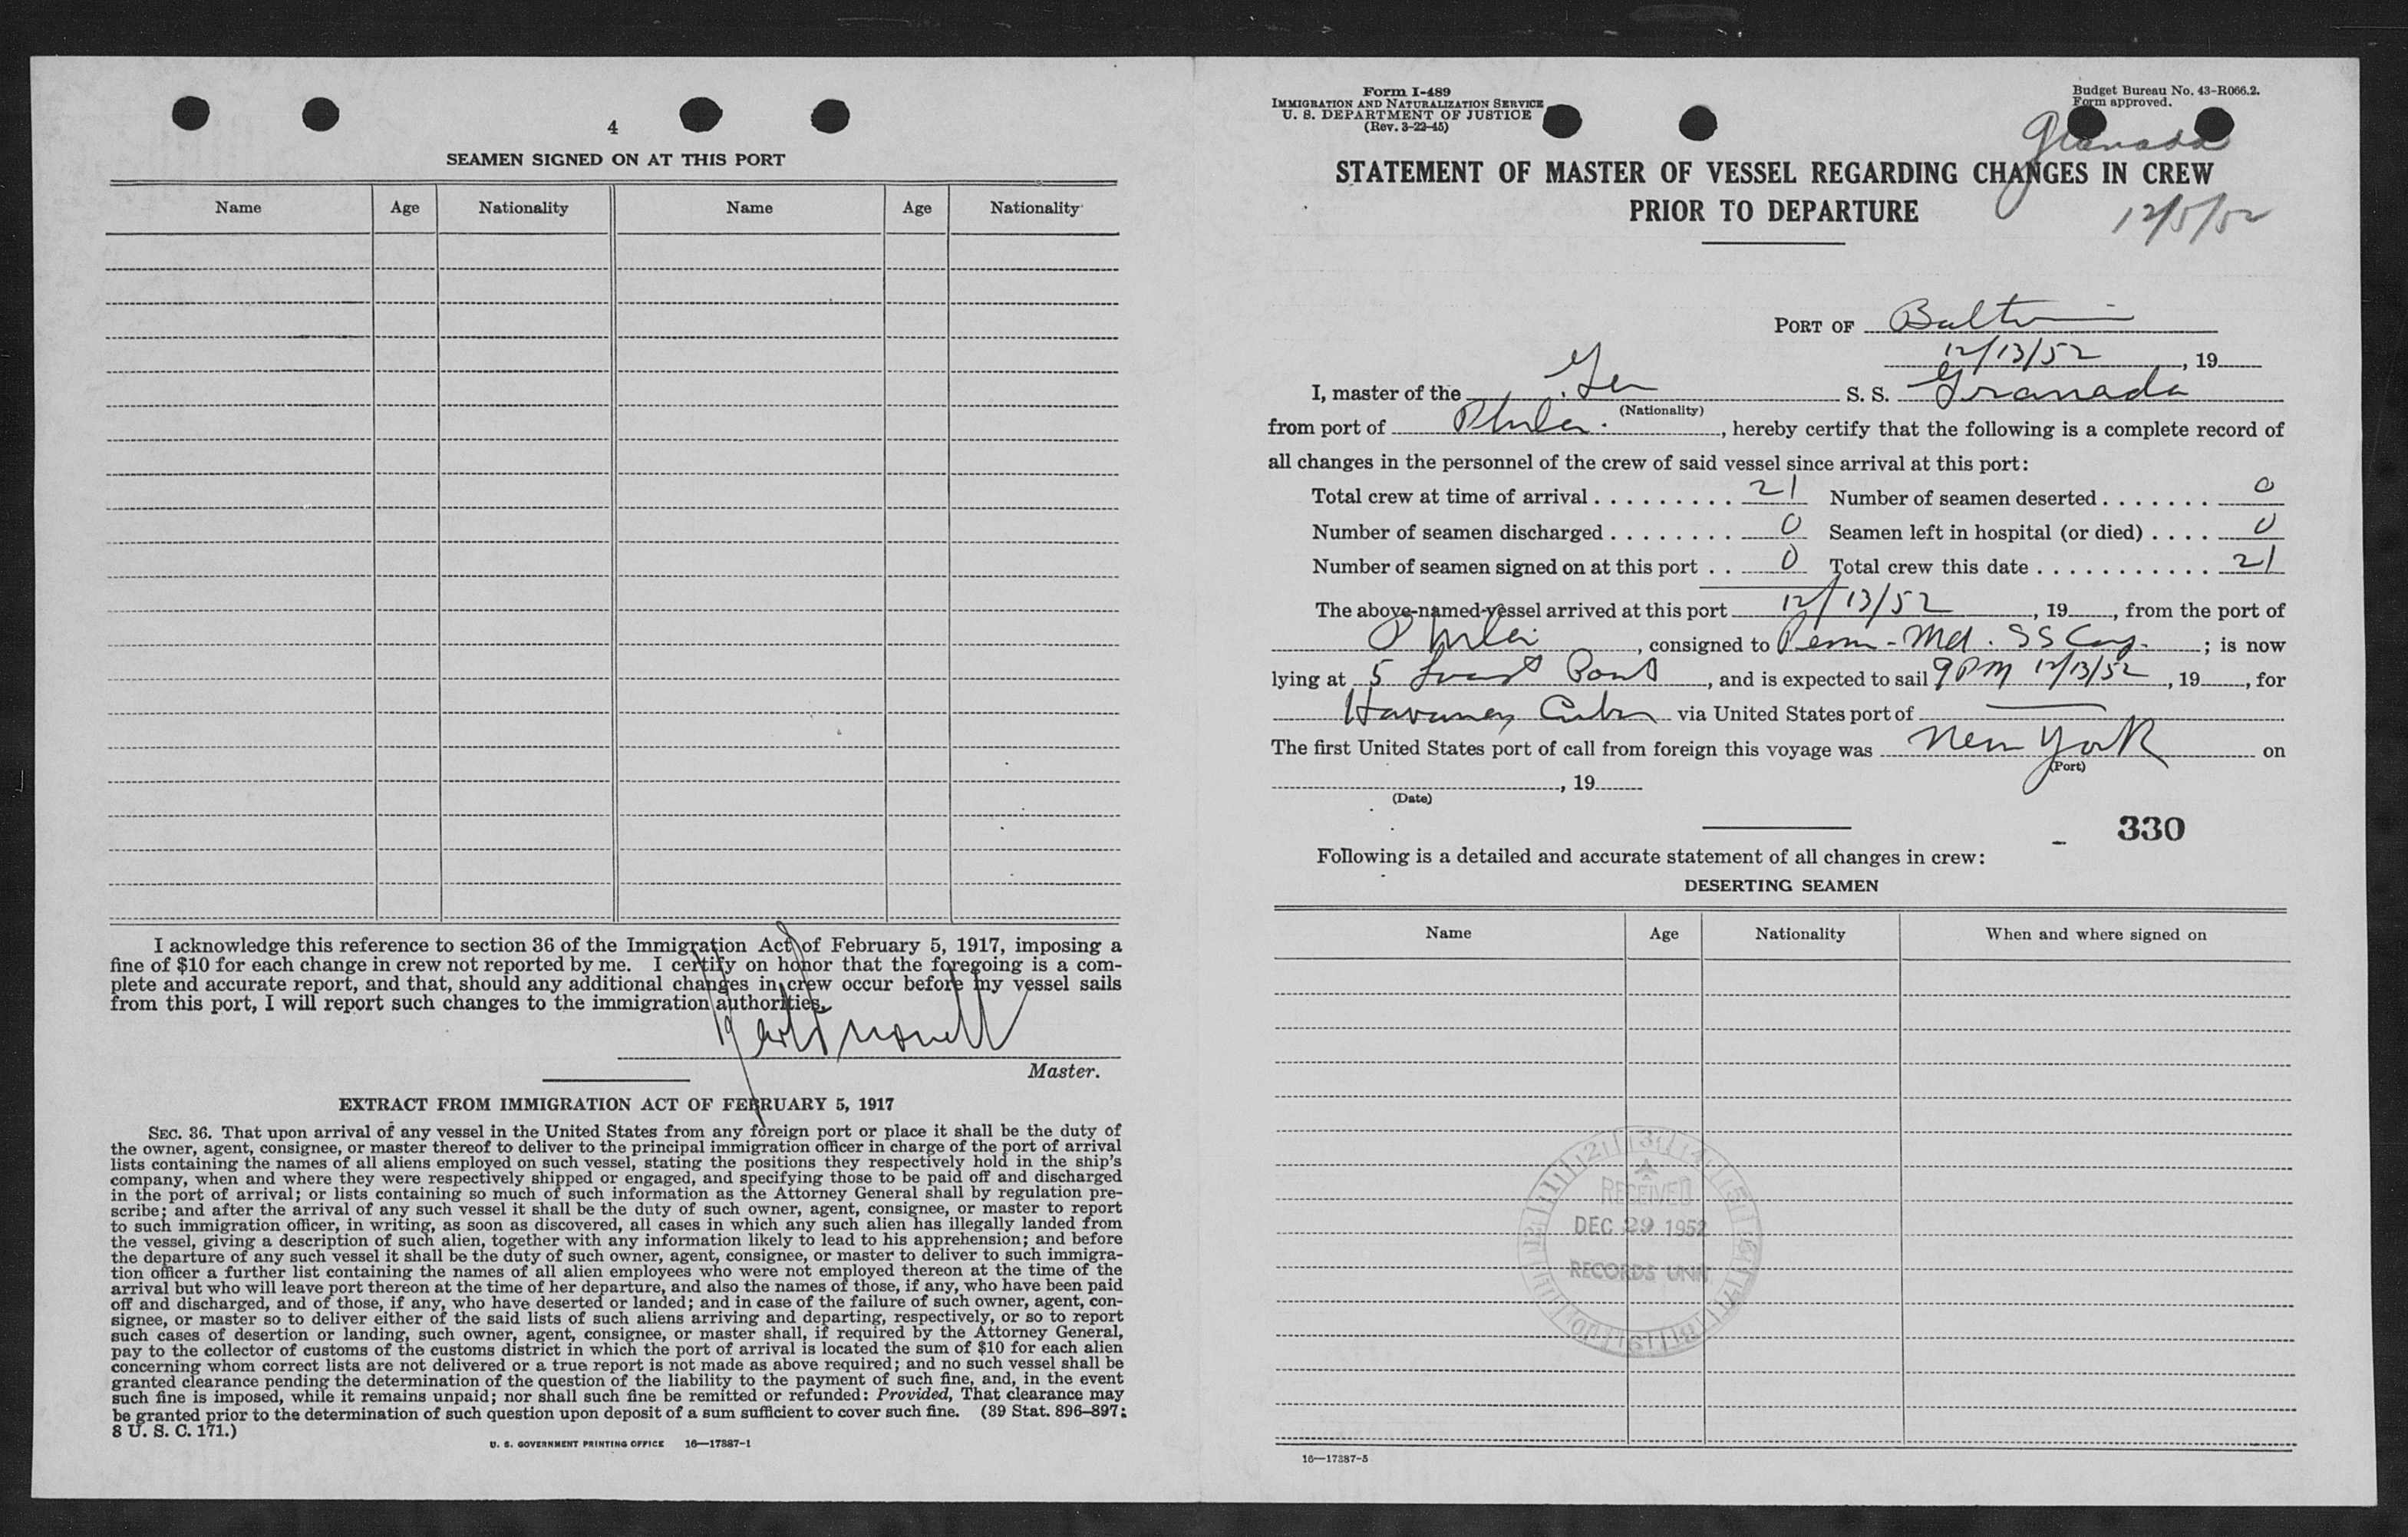 4
SEAMEN SIGNED ON AT THIS PORT
Name Age Nationality Name Age Nationality
I acknowledge this reference to section 36 of the Immigration Act of February 5, 1917, imposing a
fine of $10 for each change in crew not reported by me. I certify on honor that the foregoing is a com-
plete and accurate report, and that, should any additional changes in crew occur before my vessel sails
from this port, I will report such changes to the immigration authorities.
Master.
EXTRACT FROM IMMIGRATION ACT OF FEBRUARY 5, 1917
SEC. 36. That upon arrival of any vessel in the United States from any foreign port or place it shall be the duty of
the owner, agent, consignee, or master thereof to deliver to the principal immigration officer in charge of the port of arrival
lists containing the names of all aliens employed on such vessel, stating the positions they respectively hold in the ship's
company, when and where they were respectively shipped or engaged, and specifying those to be paid off and discharged
in the port of arrival; or lists containing so much of such information as the Attorney General shall by regulation pre-
scribe; and after the arrival of any such vessel it shall be the duty of such owner, agent, consignee, or master to report
to such immigration officer, in writing, as soon as discovered, all cases in which any such alien has illegally landed from
the vessel, giving a description of such alien, together with any information likely to lead to his apprehension; and before
the departure of any such vessel it shall be the duty of such owner, agent, consignee, or master to deliver to such immigra-
tion officer a further list containing the names of all alien employees who were not employed thereon at the time of the
arrival but who will leave port thereon at the time of her departure, and also the names of those, if any, who have been paid
off and discharged, and of those, if any, who have deserted or landed; and in case of the failure of such owner, agent, con-
signee, or master so to deliver either of the said lists of such aliens arriving and departing, respectively, or so to report
such cases of desertion or landing, such owner, agent, consignee, or master shall, if required by the Attorney General,
pay to the collector of customs of the customs district in which the port of arrival is located the sum of $10 for each alien
concerning whom correct lists are not delivered or a true report is not made as above required; and no such vessel shall be
granted clearance pending the determination of the question of the liability to the payment of such fine, and, in the event
such fine is imposed, while it remains unpaid; nor shall such fine be remitted or refunded: Provided, That clearance may
be granted prior to the determination of such question upon deposit of a sum sufficient to cover such fine. (39 Stat. 896–897;
8 U. S. C. 171.)
U. S. GOVERNMENT PRINTING OFFICE 16—17887-1
Form I-489
IMMIGRATION AND NATURALIZATION SERVICE
U. S. DEPARTMENT OF JUSTICE
(Rev. 3-22-45)
Budget Bureau No. 43-R066.2.
Form approved.
Granada
STATEMENT OF MASTER OF VESSEL REGARDING CHANGES IN CREW
PRIOR TO DEPARTURE
12/5/52
PORT OF Baltim
12/13/52, 19
I, master of the Ger S. S. Granada
(Nationality)
from port of Phila., hereby certify that the following is a complete record of
all changes in the personnel of the crew of said vessel since arrival at this port:
Total crew at time of arrival 21 Number of seamen deserted 0
Number of seamen discharged 0 Seamen left in hospital (or died) 0
Number of seamen signed on at this port 0 Total crew this date 21
The above-named vessel arrived at this port 12/13/52, 19, from the port of
Phila, consigned to Penn-Md. SS ; is now
lying at 5 Point, and is expected to sail 9 PM 12/13/52, 19, for
Havana, Cuba via United States port of —
The first United States port of call from foreign this voyage was New York on
(Port)
, 19
(Date)
330
Following is a detailed and accurate statement of all changes in crew:
DESERTING SEAMEN
Name Age Nationality When and where signed on
RECEIVED
DEC 29 1952
RECORDS UNIT
16—17387-5